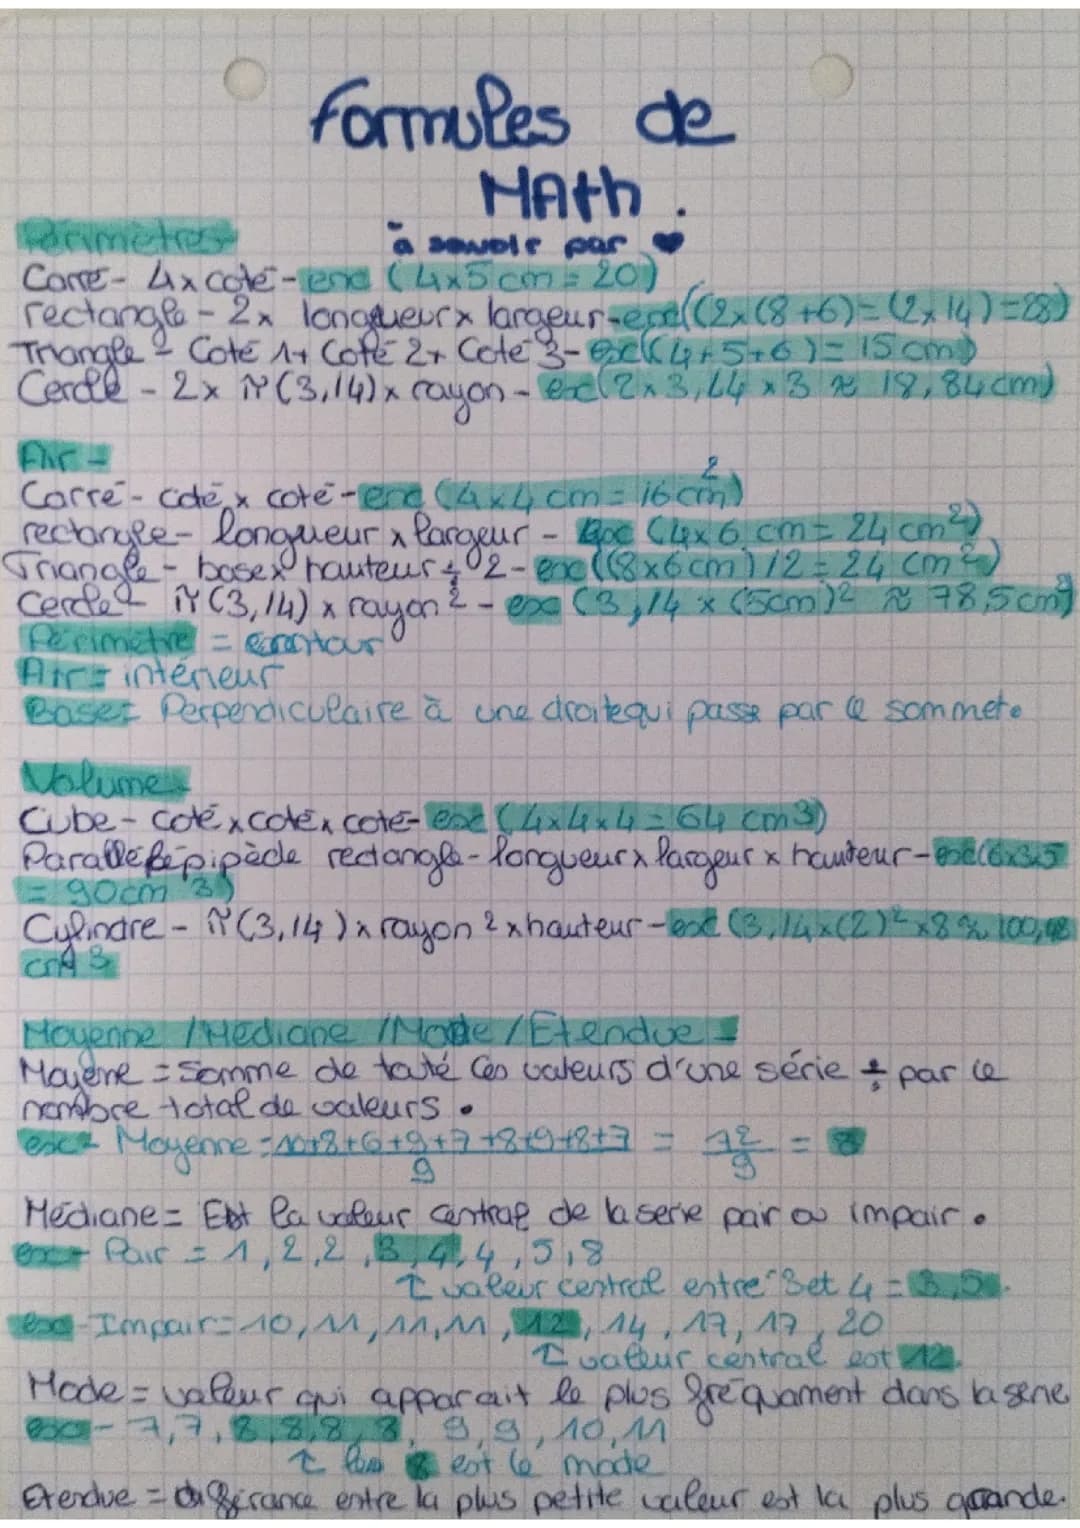 Formules de
MAth.
à savoir par ♥
Périmètres
Carré - 4x coté - exe (4x5cm = 20)
rectangle - 2x longueur x largeur - exe((2x(8+6)=(2x14)=28)
Triangle - Coté 1+ Coté 2+ Coté 3 - exe(4+5+6)= 15cm)
Cercle - 2x π(3,14)x rayon - exe(2x3,14x3 ≈ 18,84cm)
Air =
Carré - coté x coté - exe (4x4cm = 16cm²)
rectangle - longueur x largeur - exe (4x6 cm = 24cm²)
Triangle - base x hauteur ÷ 2 - exe((8x6cm)/2 = 24 cm²)
Cercle - π(3,14) x rayon² - exe (3,14 x (5cm)² ≈ 78,5cm²)
Périmètre = contour
Air = intérieur
Base = Perpendiculaire à une droite qui passe par le sommet.
Volume
Cube - coté x coté x coté - exe (4x4x4 = 64 cm3)
Parallélépipède rectangle - longueur x largeur x hauteur - exe(6x3x5
= 90cm 3)
Cylindre - π(3,14) x rayon 2 x hauteur - exe (3,14x(2)²x8 ≈ 100,48
cm 3
Moyenne / Médiane / Mode / Etendue =
Moyene = Somme de touté les valeurs d'une série ÷ par le
nombre total de valeurs.
exe - Moyenne = 10+8+6+9+7+8+9+8+7 / 9 = 72/9 = 8
Médiane = Est la valeur central de la serie pair ou impair.
exe - Pair = 1, 2, 2, 3, 4, 4, 5, 8
↑ valeur central entre 3 et 4 = 3,5.
exe - Impair = 10, 11, 11, 11, 12, 14, 17, 17, 20
↑ valeur central est 12.
Mode = valeur qui apparait le plus fréquament dans la serie
exe - 7, 7, 8, 8, 8, 8, 9, 9, 10, 11
↑ 8 est le mode
Etendue = différance entre la plus petite valeur est la plus grande.